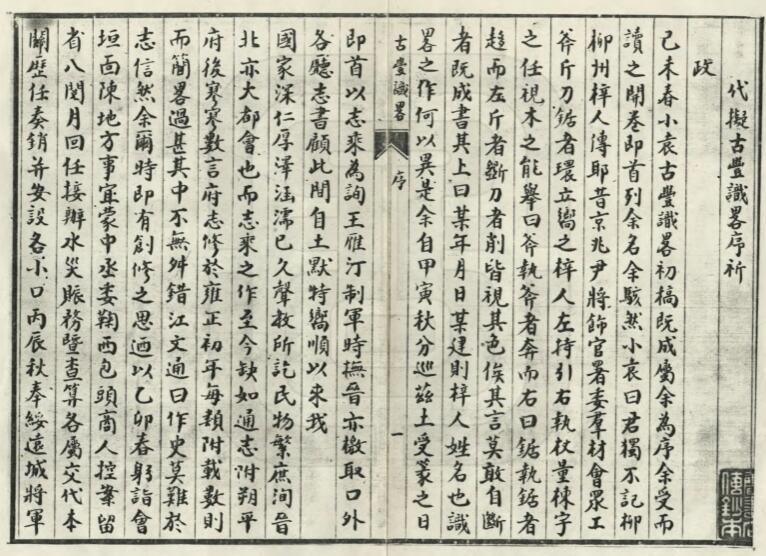 代擬古豐識畧序祈
政
己未春小袁古豐識畧初槁既成屬余為序余受而
讀之開卷即首列余名余駭然小袁曰君獨不記柳
柳州梓人傳耶昔京兆尹將飾官署委羣材會眾工
斧斤刀鋸者環立嚮之梓人左持引右執杖量棟宇
之任視木之能舉曰斧執斧者奔而右曰鋸執鋸者
趨而左斤者斲刀者削皆視其色俟其言莫敢自斷
者既成書其上曰某年月日某建則梓人姓名也識
畧之作何以異是余自甲寅秋分巡茲土受篆之日
古豐識畧
序
一
即首以志乘為詢王雁汀制軍時撫晉亦檄取口外
各廳志書顧此間自土默特嚮順以來我
國家深仁厚澤涵濡已久聲教所訖民物繁庶洵晉
北亦大都會也而志乘之作至今缺如通志附朔平
府後寥寥數言府志修於雍正初年每類附載數則
而簡畧過甚其中不無舛錯江文通曰作史莫難於
志信然余爾時即有創修之思迺以乙卯春躬詣會
垣面陳地方事宜蒙中丞委鞫西包頭商人控案留
省八閱月回任接辦水災賑務暨查算各屬交代本
關歷任奏銷并安設各小口丙辰秋奉綏遠城將軍